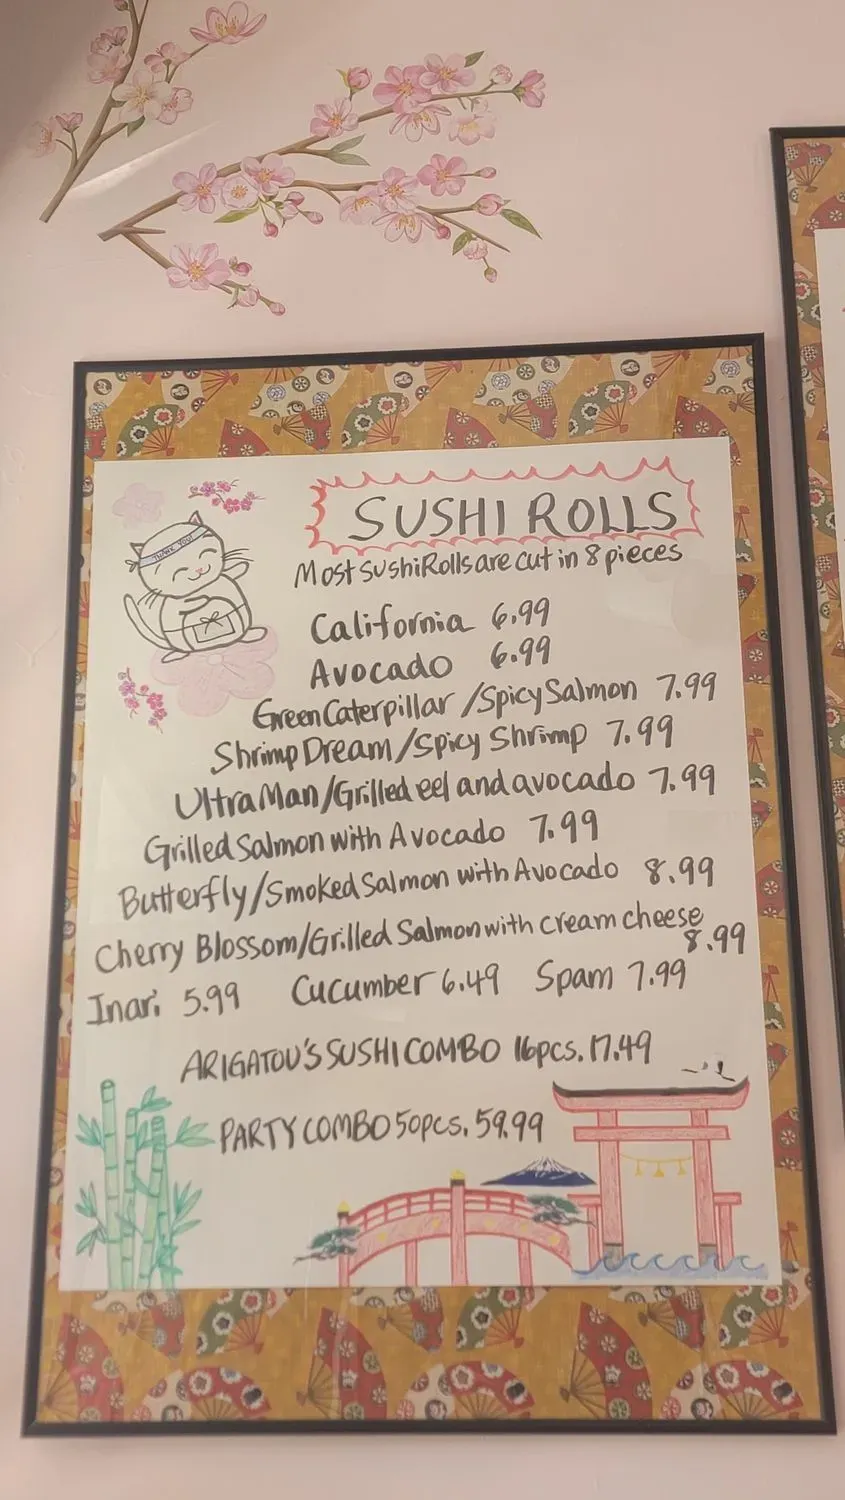 THANK YOU!
SUSHI ROLLS
Most Sushi Rolls are cut in 8 pieces
California 6.99
Avocado 6.99
Green Caterpillar /Spicy Salmon 7.99
Shrimp Dream/Spicy Shrimp 7.99
Ultra Man/Grilled eel and avocado 7.99
Grilled Salmon with Avocado 7.99
Butterfly/Smoked Salmon with Avocado 8.99
Cherry Blossom/Grilled Salmon with cream cheese
8.99
Inari 5.99 Cucumber 6.49 Spam 7.99
ARIGATOU'S SUSHI COMBO 16pcs. 17.49
PARTY COMBO 50pcs. 59.99